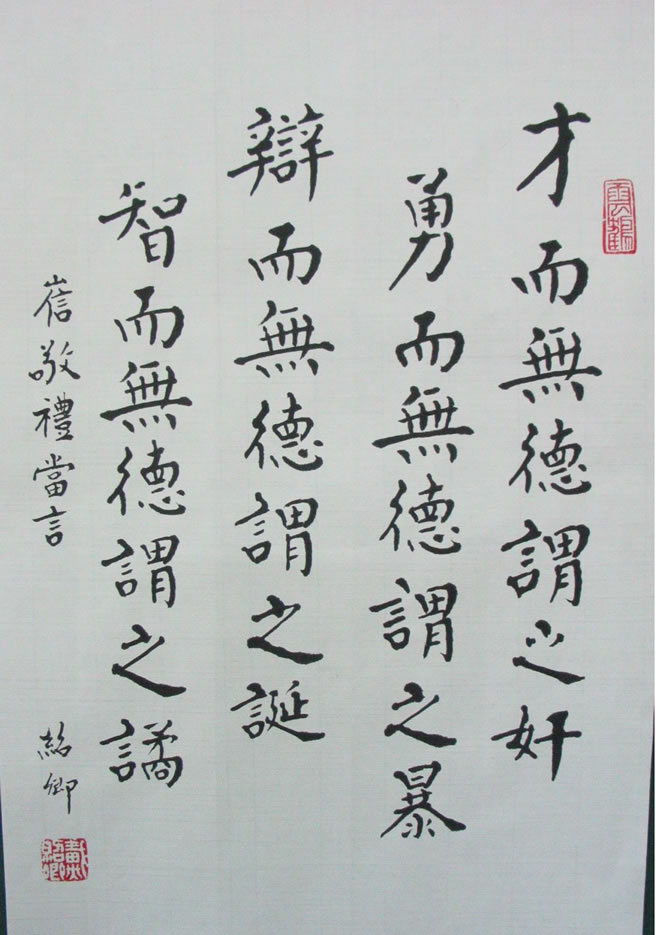 才而無德謂之奸
勇而無德謂之暴
辯而無德謂之誕
智而無德謂之譎
崔敬禮當言
紹卿